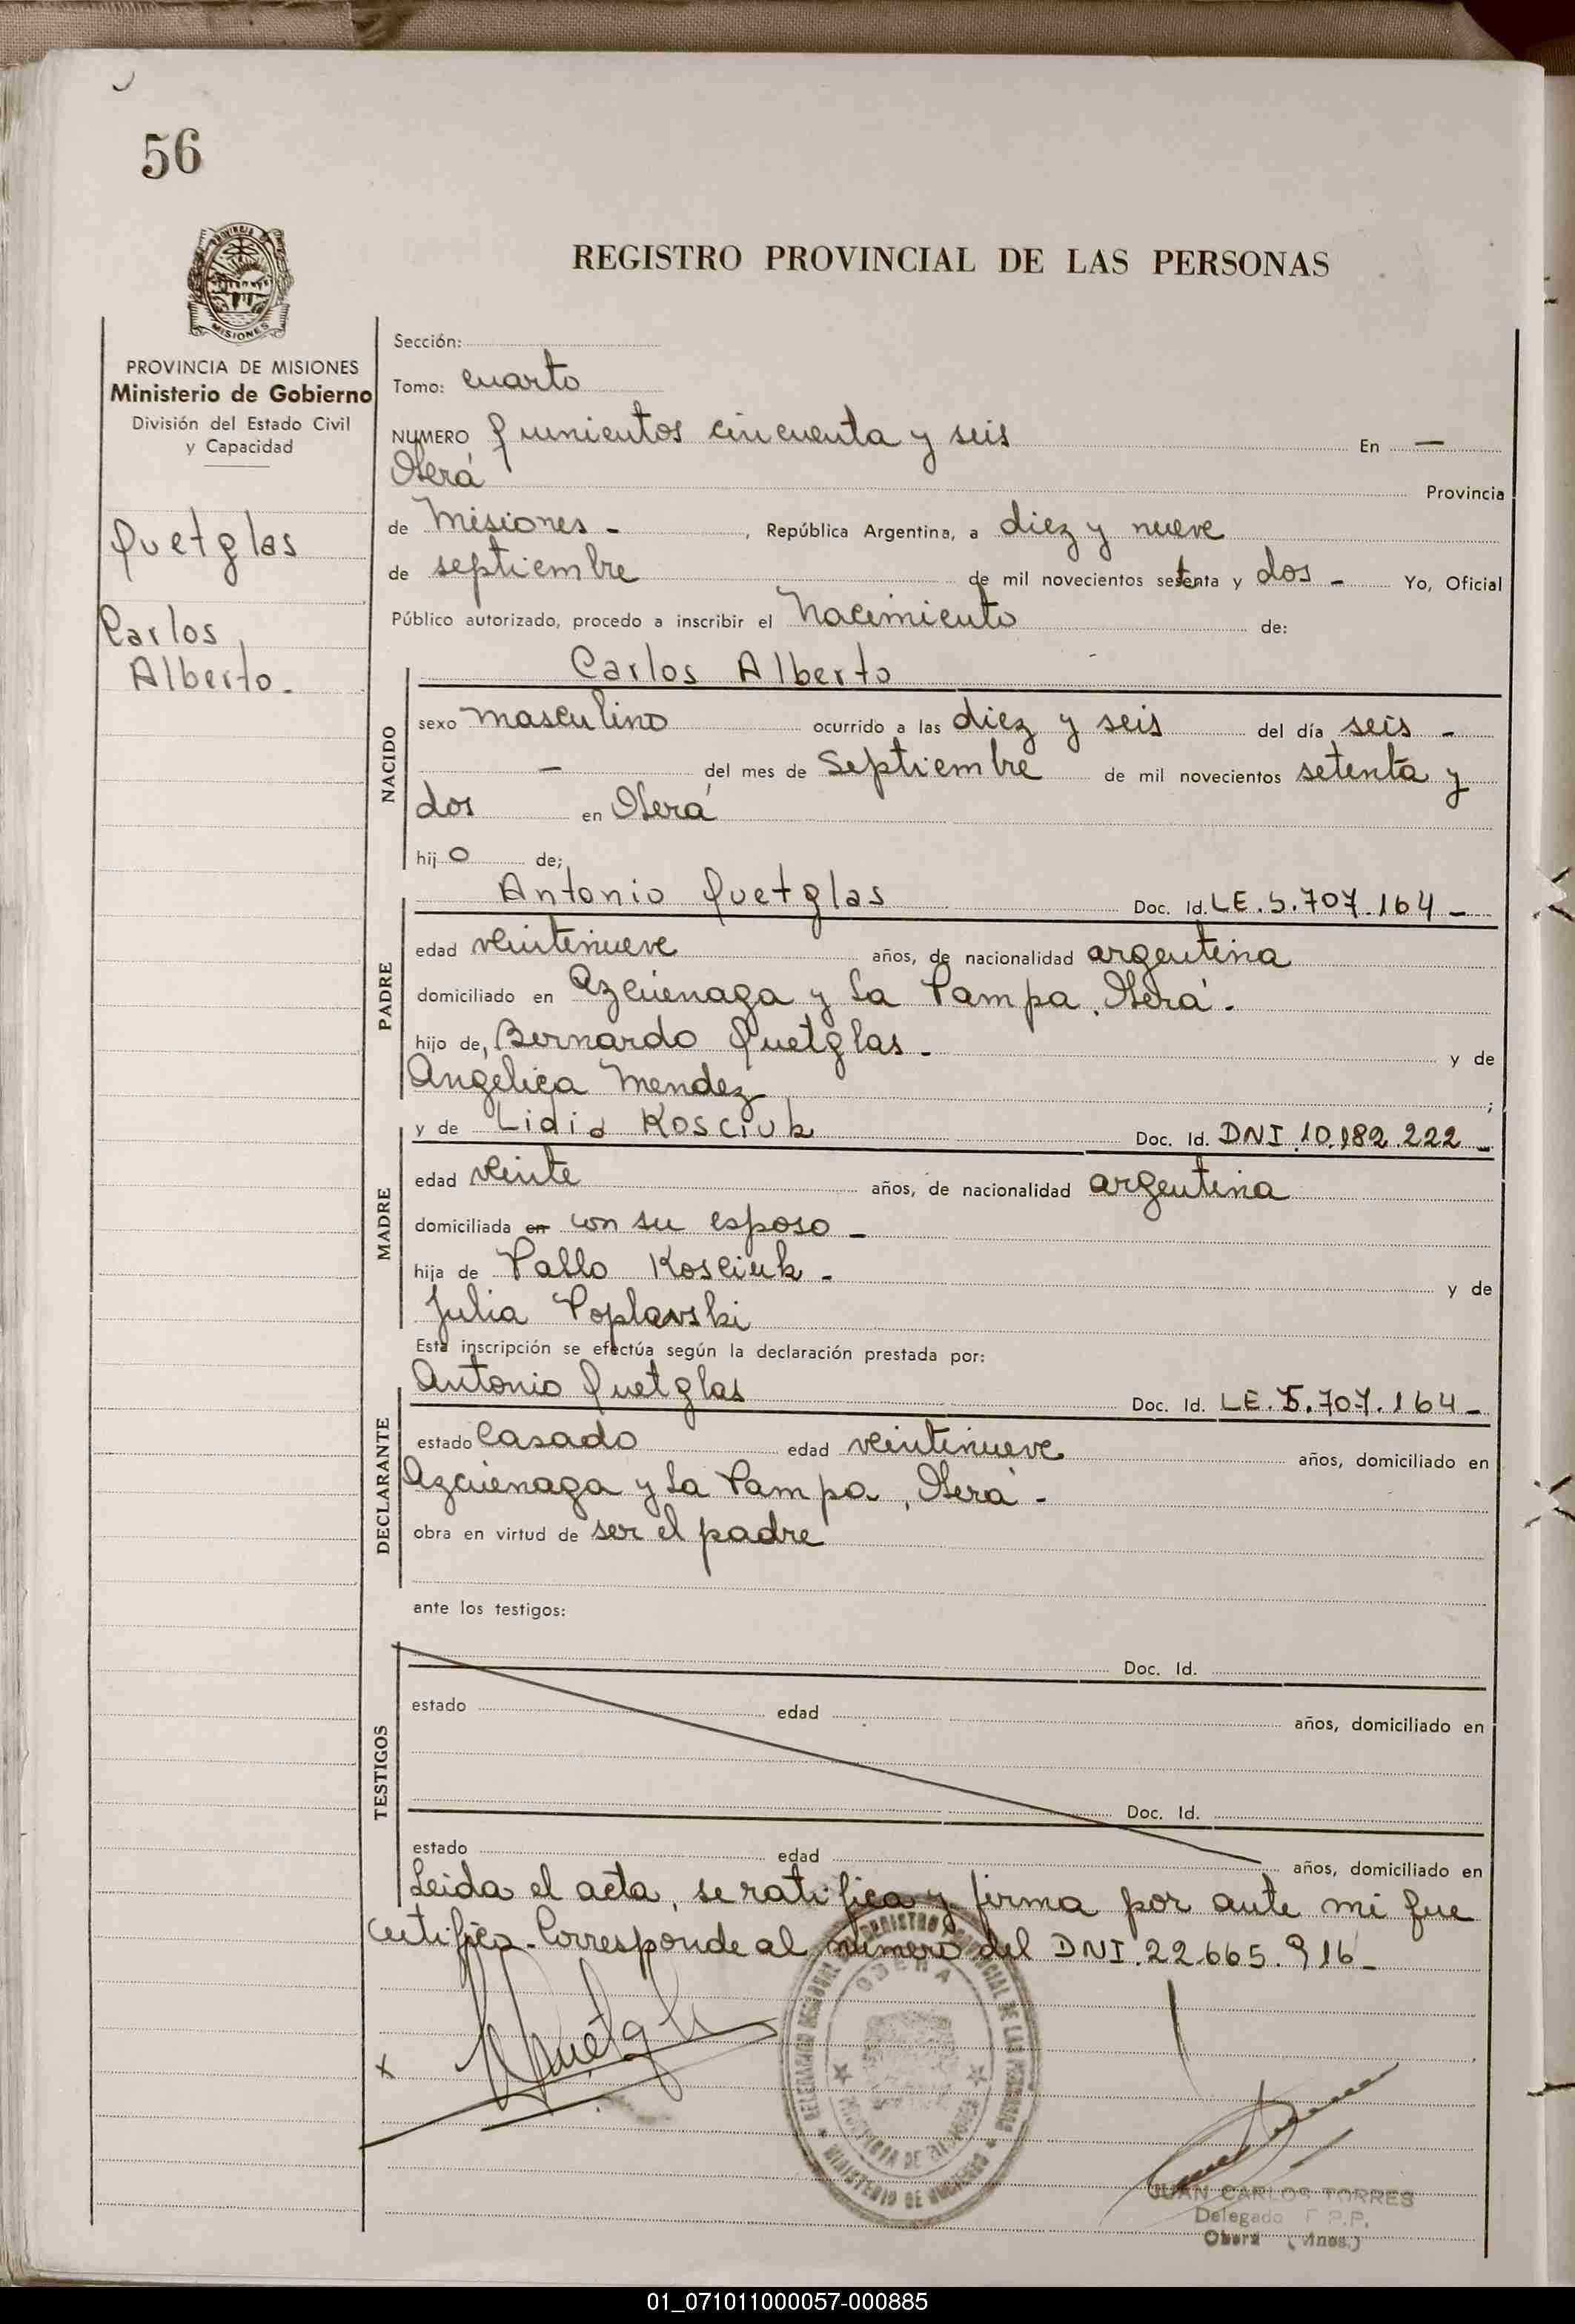 56
REGISTRO PROVINCIAL DE LAS PERSONAS
MISIONES
PROVINCIA DE MISIONES
Ministerio de Gobierno
División del Estado Civil
y Capacidad
Quetglas
Carlos
Alberto.
Sección:
Tomo: cuarto
NUMERO Quinientos cincuenta y seis En —
Oberá Provincia
de Misiones - , República Argentina, a diez y nueve
de septiembre de mil novecientos setenta y dos - Yo, Oficial
Público autorizado, procedo a inscribir el Nacimiento de:
Carlos Alberto
NACIDO
sexo masculino ocurrido a las diez y seis del día seis -
— del mes de Septiembre de mil novecientos setenta y
dos en Oberá
hij o de;
Antonio Quetglas Doc. Id. LE. 5.707.164 -
PADRE
edad veintinueve años, de nacionalidad argentina
domiciliado en Azcuénaga y La Pampa, Oberá -
hijo de, Bernardo Quetglas - y de
Angelica Mendez ;
y de Lidia Kosciuk Doc. Id. DNI 10.182.222 -
MADRE
edad veinte años, de nacionalidad argentina
domiciliada en con su esposo -
hija de Pablo Kosciuk - y de
Julia Poplavski
Esta inscripción se efectúa según la declaración prestada por:
Antonio Quetglas Doc. Id. LE. 5.707.164 -
DECLARANTE
estado Casado edad veintinueve años, domiciliado en
Azcuénaga y La Pampa, Oberá -
obra en virtud de ser el padre
ante los testigos:
TESTIGOS
Doc. Id.
estado edad años, domiciliado en
Doc. Id.
estado edad años, domiciliado en
Leida el acta, se ratifica y firma por ante mi que
certifico - Corresponde al número del DNI. 22.665.916 -
x Quetgl
OBERA
JUAN CARLOS TORRES
Delegado R.P.P.
Oberá (Mnes.)
01_071011000057-000885